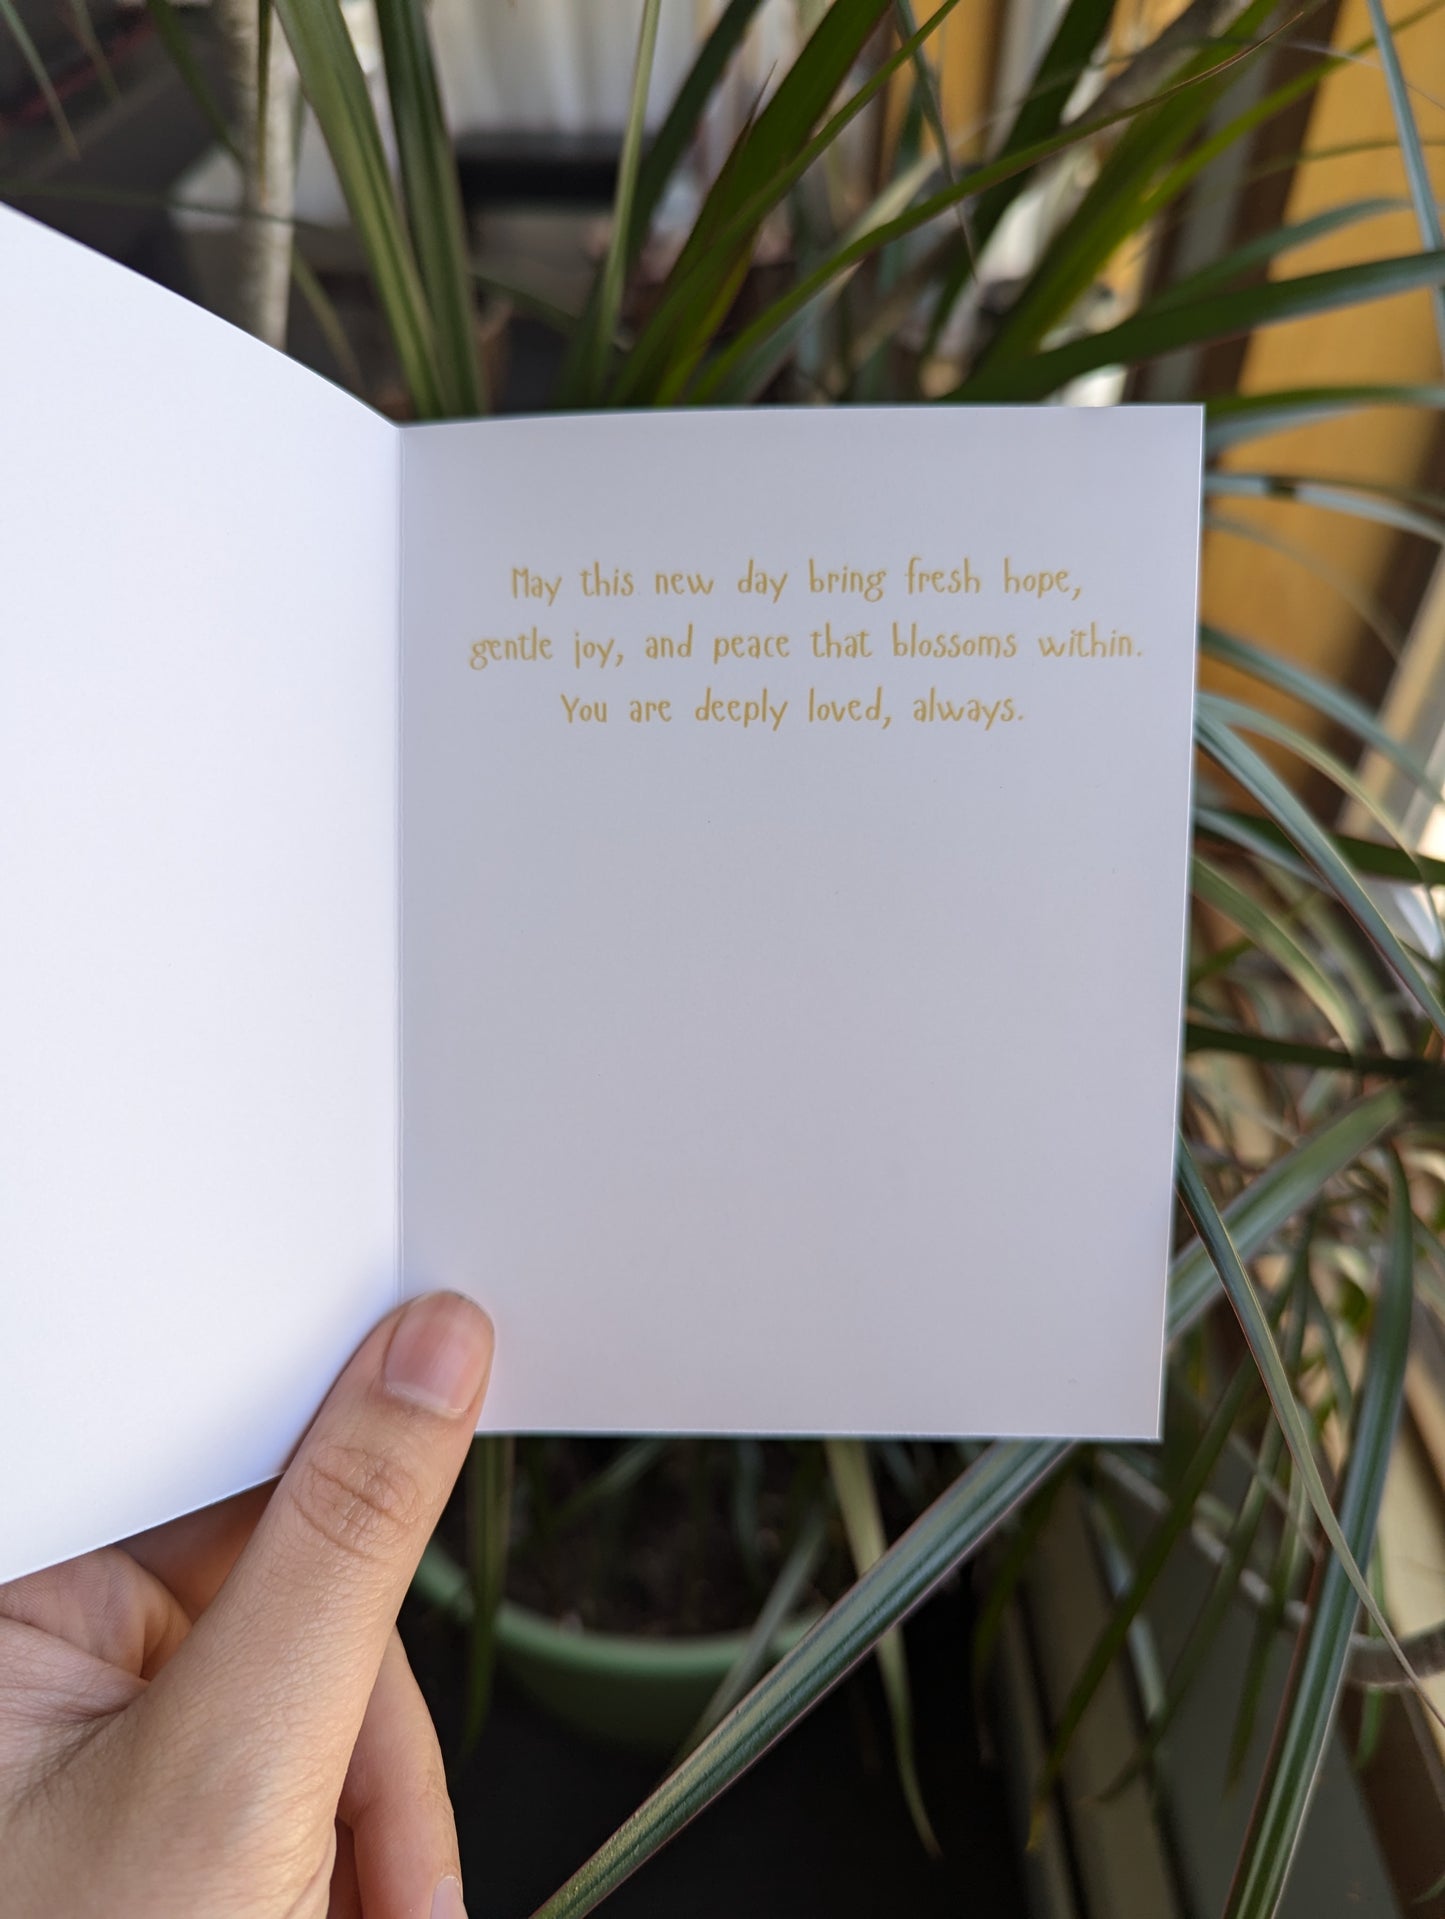 May this new day bring fresh hope,
gentle joy, and peace that blossoms within.
You are deeply loved, always.